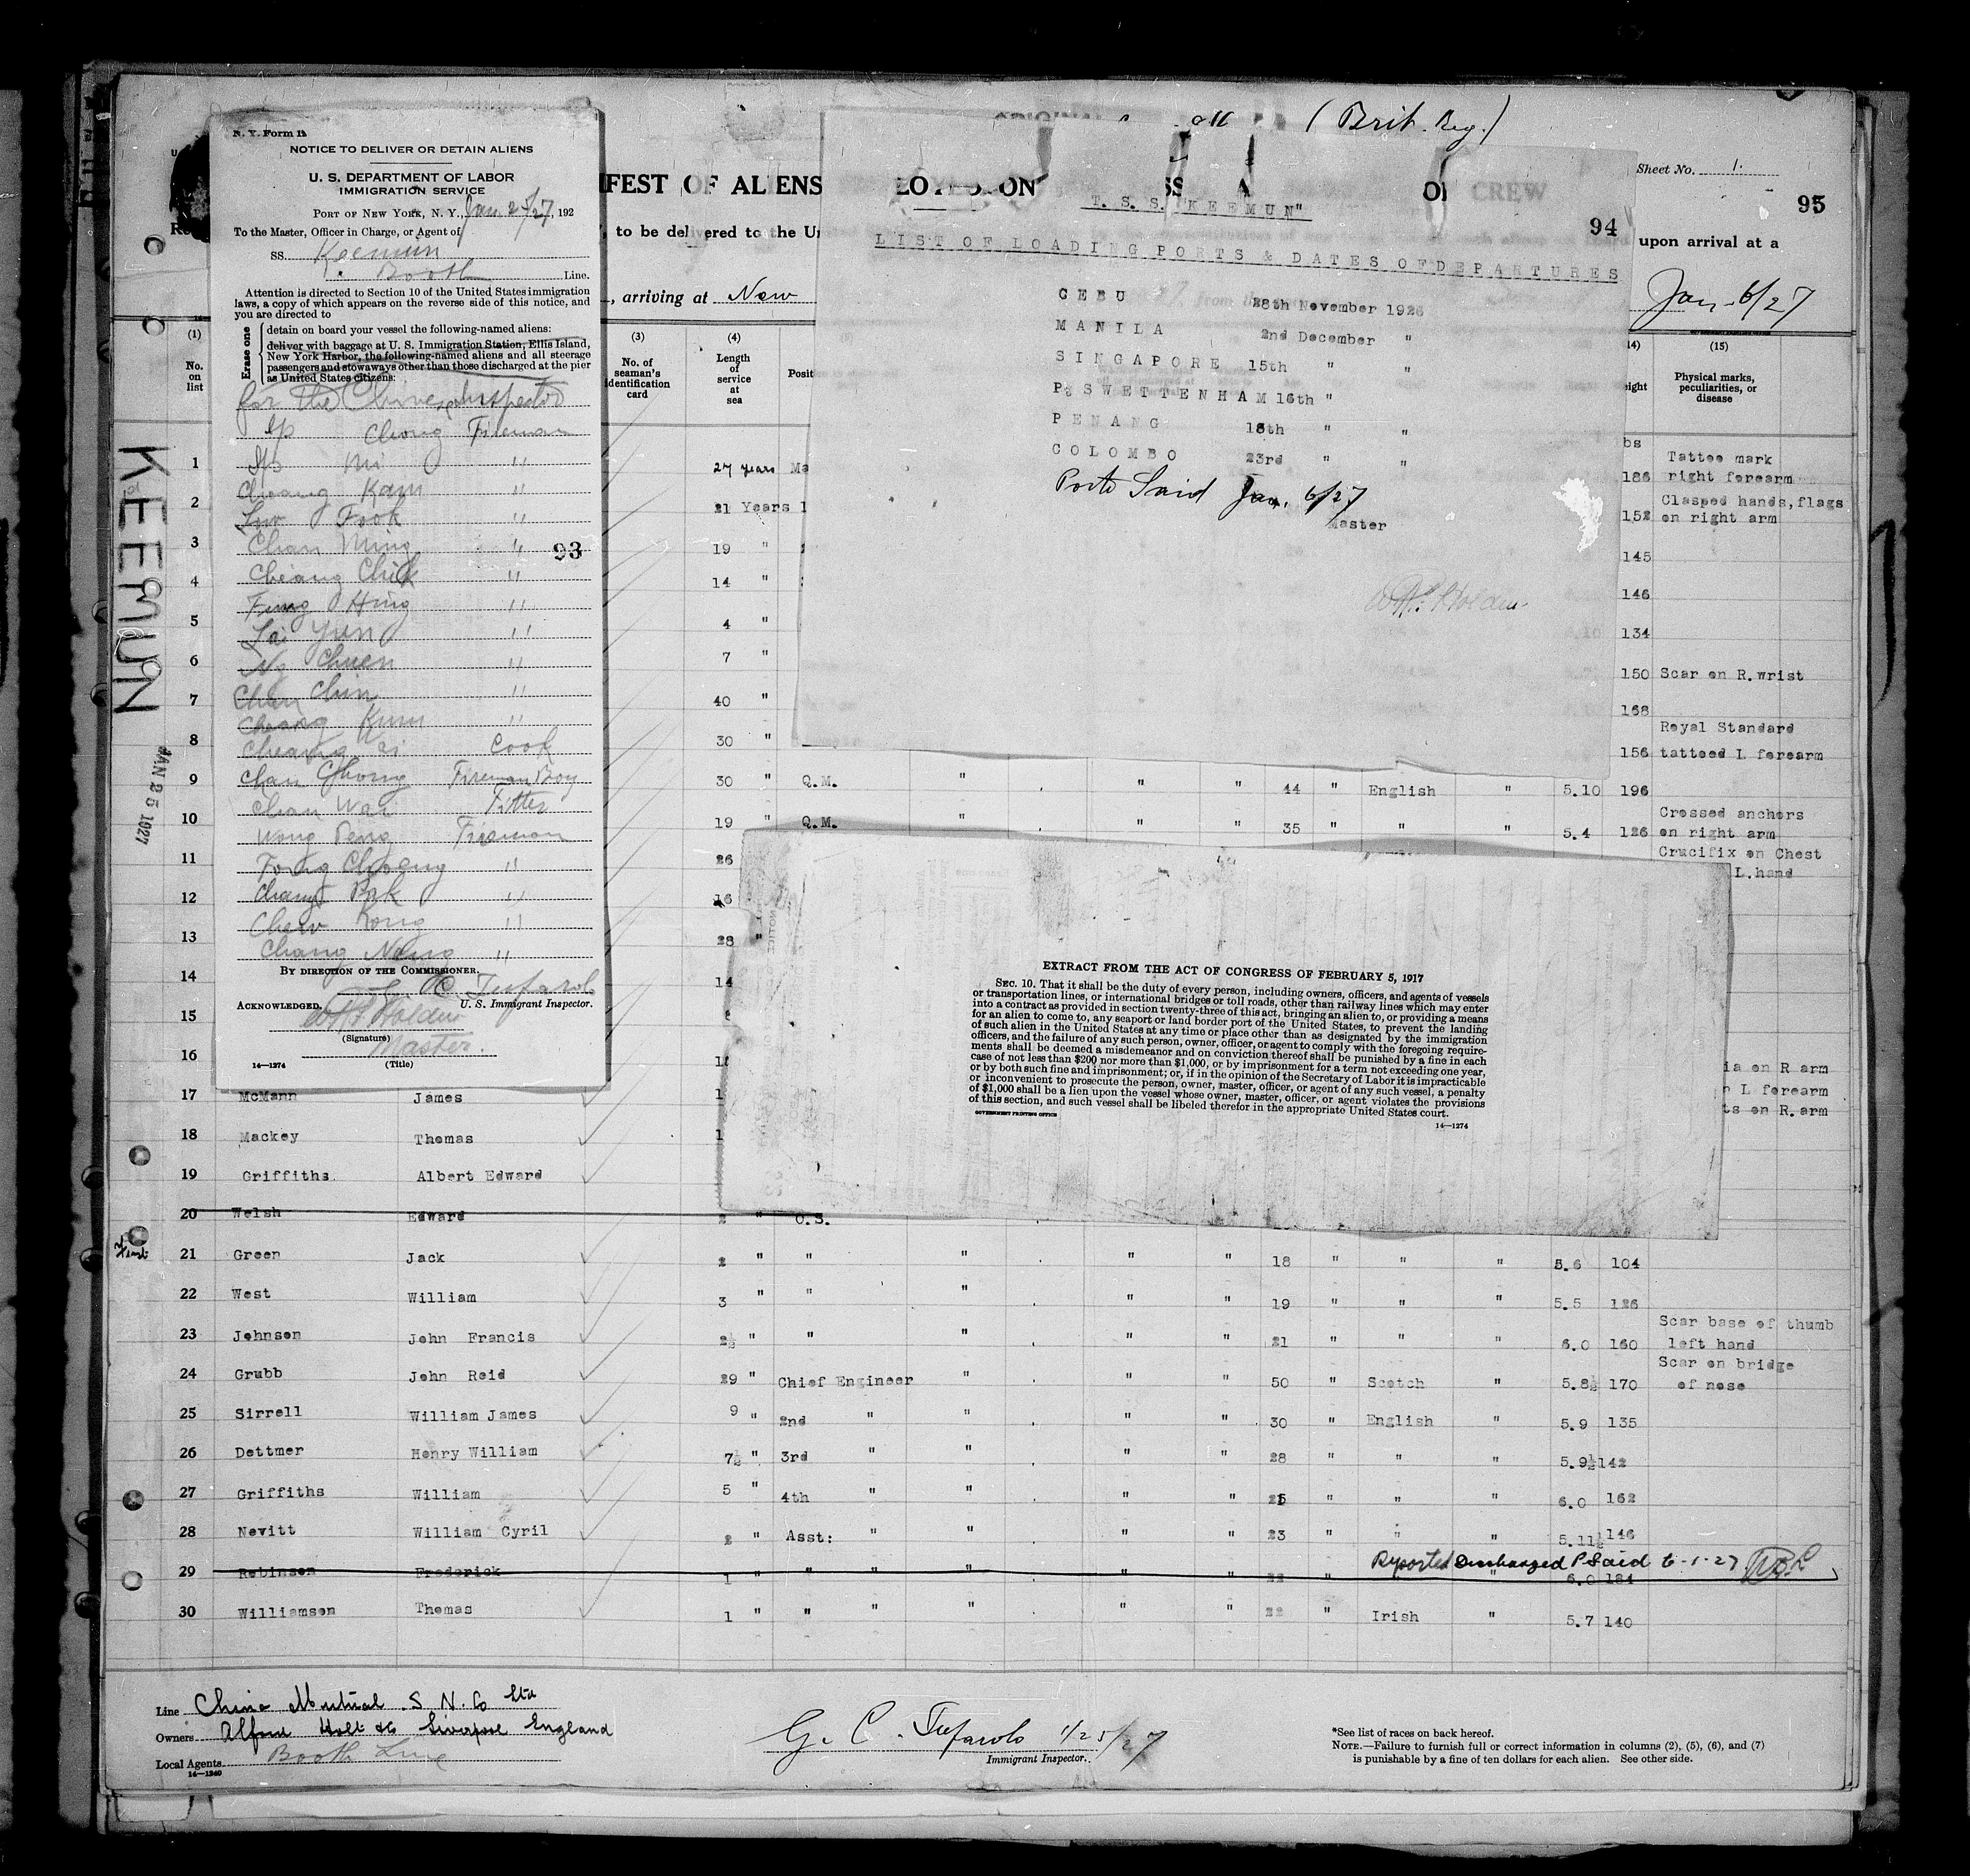 N. Y. Form 1
NOTICE TO DELIVER OR DETAIN ALIENS
U. S. DEPARTMENT OF LABOR
IMMIGRATION SERVICE
PORT OF NEW YORK, N. Y., Jan 25/27, 192
To the Master, Officer in Charge, or Agent of
SS. Keemun
Booth Line.
Attention is directed to Section 10 of the United States immigration
laws, a copy of which appears on the reverse side of this notice, and
you are directed to
Erase one
detain on board your vessel the following-named aliens:
deliver with baggage at U. S. Immigration Station, Ellis Island,
New York Harbor, the following-named aliens and all steerage
passengers and stowaways other than those discharged at the pier
as United States citizens:
for the Chinese Inspector
Ip Chong Fireman
Ip Mi "
Cheang Kam "
Low Fook "
Chan Ming "
93
Cheang Chik "
Fung Hing "
Lai Yun "
Ng Chuen "
Chan Chin "
Cheang Kum "
Cheang Cook
Chan Chong Fireman Boy
Chan Wai Fitter
Wong Peng Fireman
Fong Cheong "
Chang Pak "
Chew Kong "
Chang Nang "
BY DIRECTION OF THE COMMISSIONER.
G. C. Tufarolo
ACKNOWLEDGED. U. S. Immigrant Inspector.
Holden
(Signature)
Master.
(Title)
14—1274
KEEMUN
JAN 25 1927
(Brit. Reg.)
FEST OF ALIENS
ON
CREW
Sheet No. 1.
95
, to be delivered to the Un
upon arrival at a
, arriving at New
Jan. 6/27
94
T. S. S. "KEEMUN"
LIST OF LOADING PORTS & DATES OF DEPARTURES
CEBU 28th November 1926
MANILA 2nd December "
SINGAPORE 15th " "
Pt SWETTENHAM 16th "
PENANG 18th " "
COLOMBO 23rd " "
Porte Said Jan. 6/27
Master
Holden
(1) (3) (4) (14) (15)
No. on list
No. of seaman's identification card
Length of service at sea
Posit
eight
Physical marks, peculiarities, or disease
bs
1 27 years Ma 186 Tattoo mark right forearm
2 21 Years 152 Clasped hands, flags on right arm
3 19 " 145
4 14 " 146
5 4 " 134
6 7 " 150 Scar on R. wrist
7 40 " 168
8 30 " 156 Royal Standard tattoed L forearm
9 30 " Q.M. " " " 44 " English " 5.10 196
10 19 " Q.M. " " " 35 " " " 5.4 126 Crossed anchors on right arm
11 26 Crucifix on Chest
L. hand
12 16
13 28 "
14 14
15
16
ia on R arm
L forearm
ts on R. arm
EXTRACT FROM THE ACT OF CONGRESS OF FEBRUARY 5, 1917
SEC. 10. That it shall be the duty of every person, including owners, officers, and agents of vessels
or transportation lines, or international bridges or toll roads, other than railway lines which may enter
into a contract as provided in section twenty-three of this act, bringing an alien to, or providing a means
for an alien to come to, any seaport or land border port of the United States, to prevent the landing
of such alien in the United States at any time or place other than as designated by the immigration
officers, and the failure of any such person, owner, officer, or agent to comply with the foregoing require-
ments shall be deemed a misdemeanor and on conviction thereof shall be punished by a fine in each
case of not less than $200 nor more than $1,000, or by imprisonment for a term not exceeding one year,
or by both such fine and imprisonment; or, if in the opinion of the Secretary of Labor it is impracticable
or inconvenient to prosecute the person, owner, master, officer, or agent of any such vessel, a penalty
of $1,000 shall be a lien upon the vessel whose owner, master, officer, or agent violates the provisions
of this section, and such vessel shall be libeled therefor in the appropriate United States court.
GOVERNMENT PRINTING OFFICE
14—1274
17 McMann James
18 Mackey Thomas
19 Griffiths Albert Edward
20 Welsh Edward 2 " O.S.
21 Green Jack 2 " " " " " 18 " " " 5.6 104
22 West William 3 " " " " " 19 " " " 5.5 126
23 Johnson John Francis 2½ " " " " " 21 " " " 6.0 160 Scar base of thumb left hand
24 Grubb John Reid 29 " Chief Engineer " " " 50 " Scotch " 5.8½ 170 Scar on bridge of nose
25 Sirrell William James 9 " 2nd " " " " 30 " English " 5.9 135
26 Dettmer Henry William 7½ " 3rd " " " " 28 " " " 5.9½ 142
27 Griffiths William 5 " 4th " " " " 25 " " " 6.0 162
28 Nevitt William Cyril 2 " Asst: " " " " 23 " " " 5.11½ 146
Reported Discharged P Said 6-1-27
29 Robinson Frederick 1 " " " " 22 " 6.0 184
30 Williamson Thomas 1 " " " " " " 22 " Irish " 5.7 140
Line China Mutual S. N. Co Ltd
Owners Alfred Holt & Co Liverpool England
Local Agents Booth Line
14—1240
G. C. Tufarolo 1/25/27
Immigrant Inspector.
*See list of races on back hereof.
NOTE.—Failure to furnish full or correct information in columns (2), (5), (6), and (7)
is punishable by a fine of ten dollars for each alien. See other side.